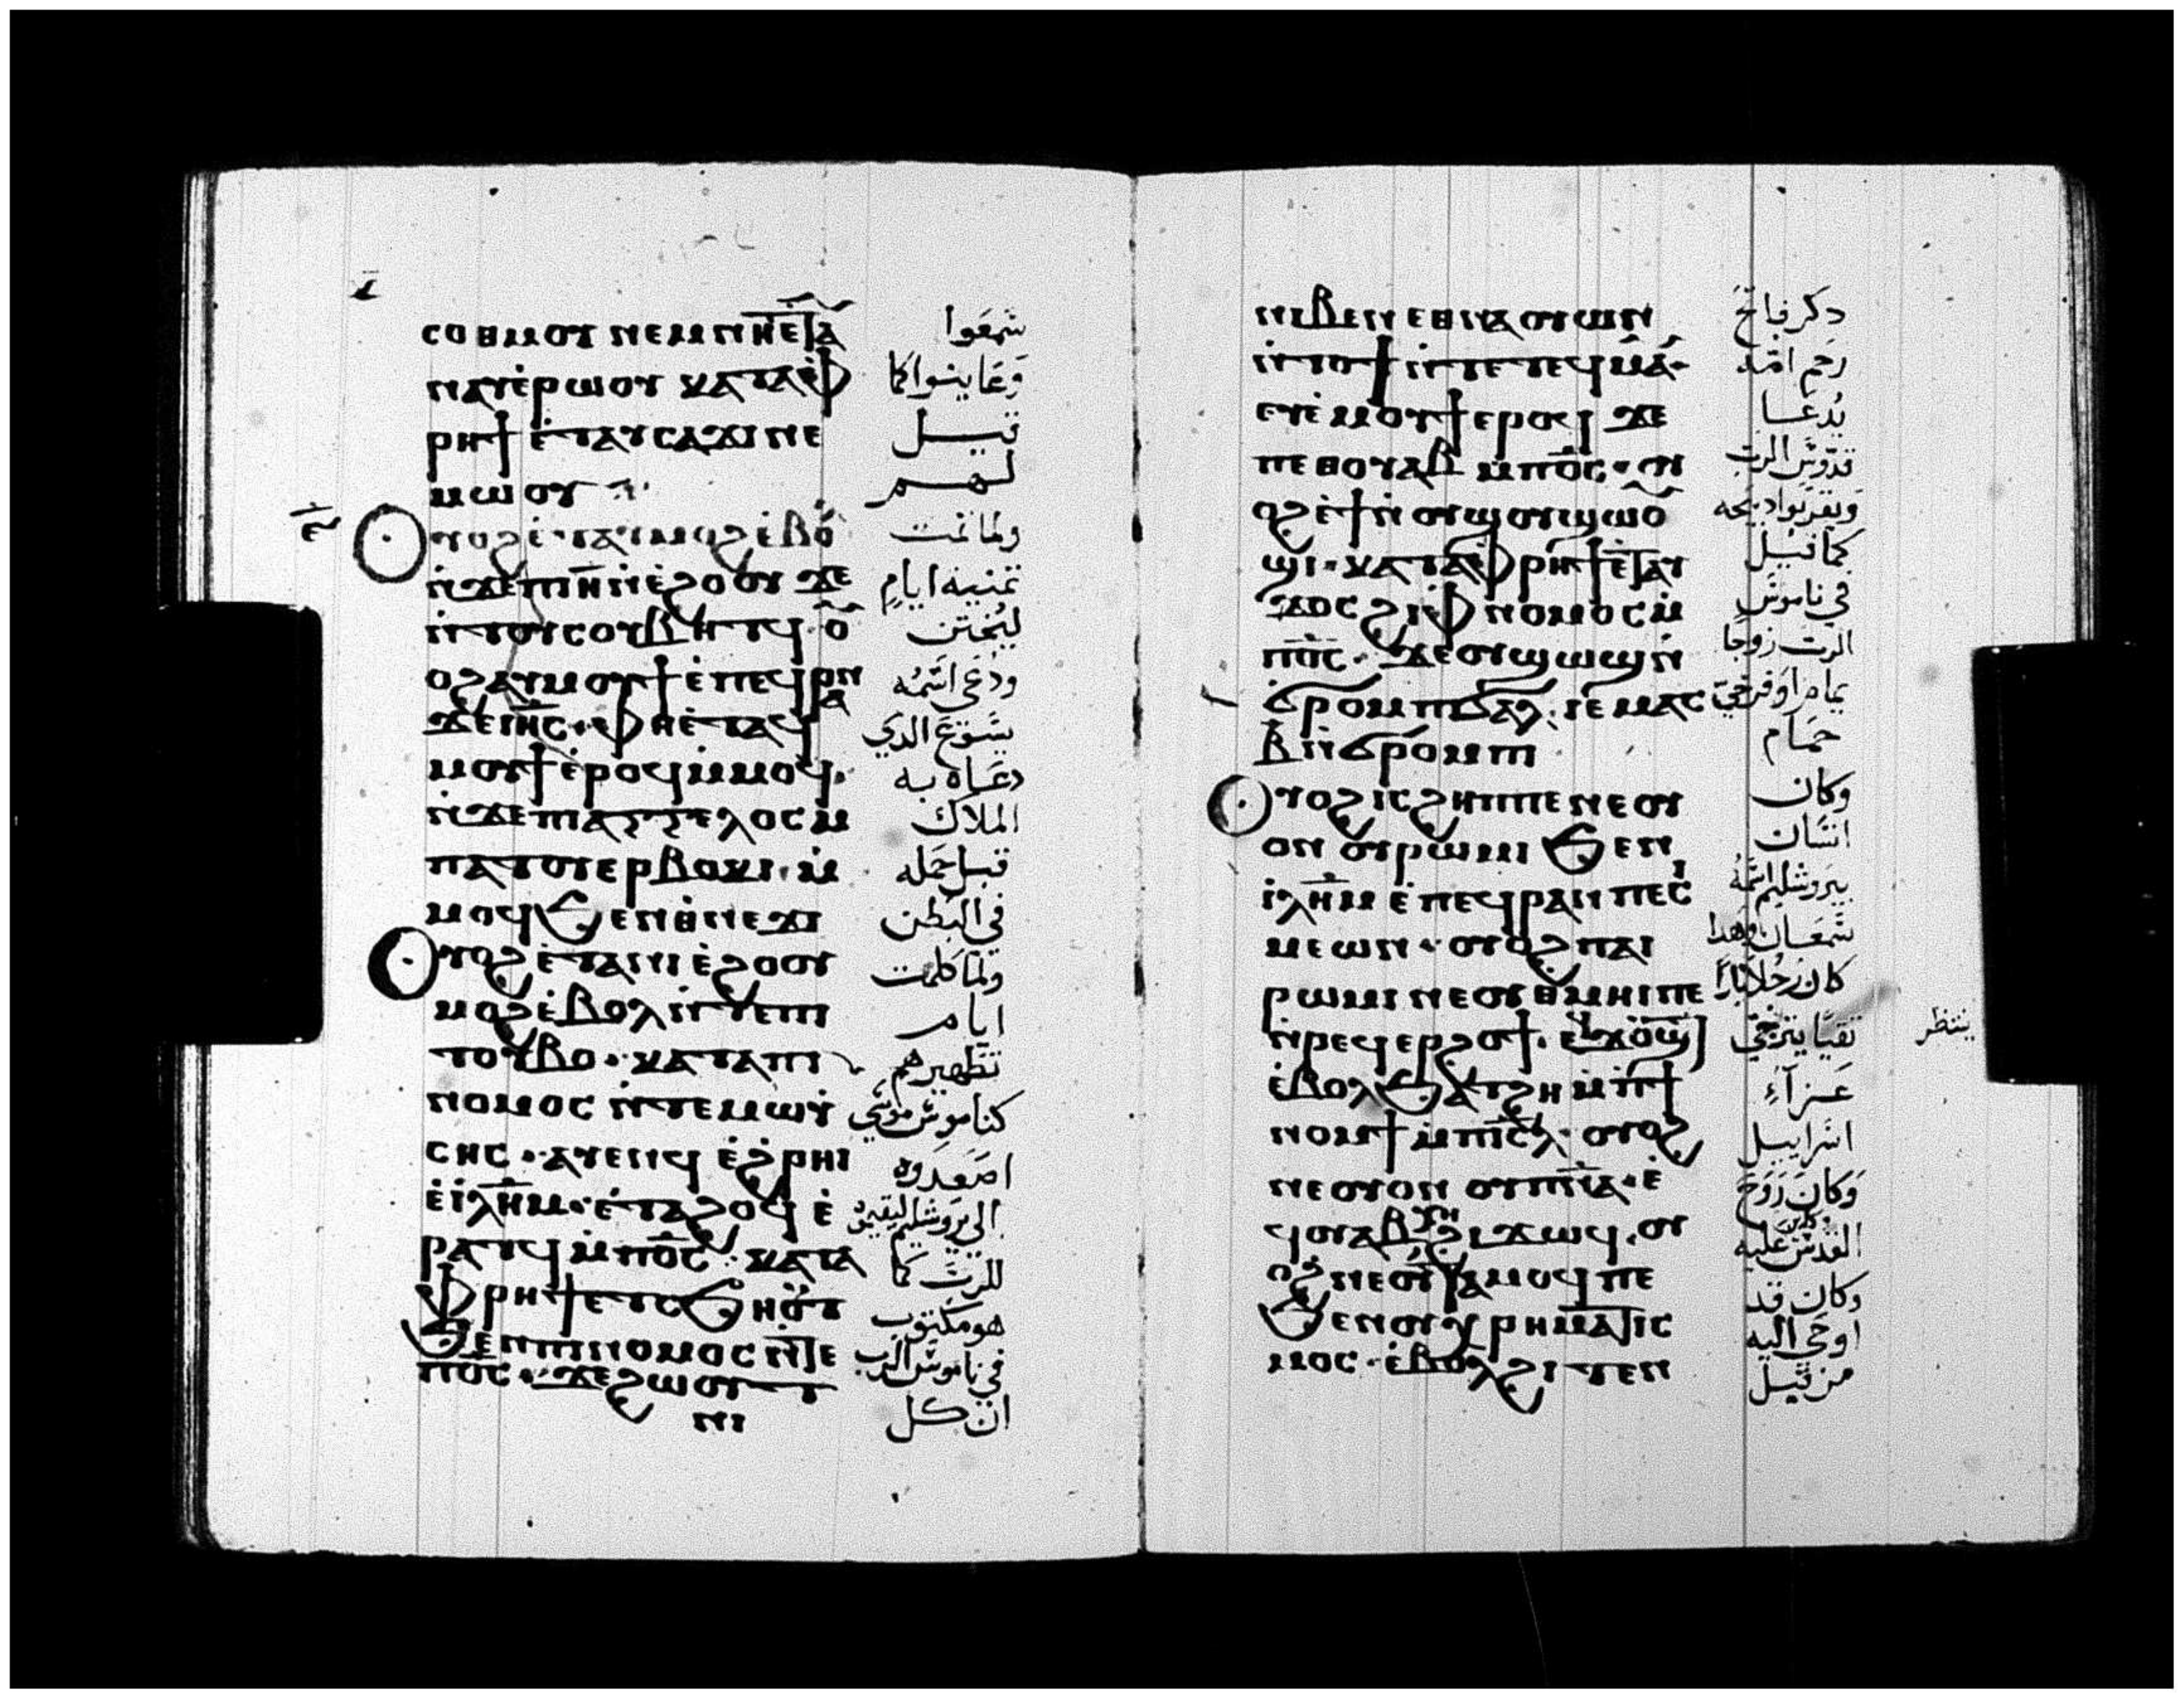 ⲥⲟⲑⲙⲟⲩ ⲛⲉⲙⲛⲏⲉⲧⲁ
ⲛⲁⲩⲉ̀ⲣⲱⲟⲩ ⲕⲁⲧⲁⲫ
ⲣⲏϯ ⲉ̀ⲧⲁⲩⲥⲁϫⲓ ⲛⲉ
ⲙⲱⲟⲩ
ⲟⲩⲟϩ ⲉ̀ⲧⲁⲩⲙⲟϩ ⲉ̀ⲃⲟ
ⲛ̀ϫⲉⲡⲓⲏ̅ⲛ̀ⲉ̀ϩⲟⲟⲩ ϫⲉ
ⲛ̀ⲧⲟⲩⲥⲟⲩⲃⲏⲧϥ ⲟ
ⲟϩⲁⲩⲙⲟⲩϯ ⲉ̀ⲡⲉϥⲣⲁⲛ
ϫⲉⲓⲏ̅ⲥ ⲫⲏⲉ̀ⲧⲁϥ
ⲙⲟⲩϯ ⲉ̀ⲣⲟϥ ⲙ̀ⲙⲟϥ
ⲛ̀ϫⲉⲡⲓⲁⲅⲅⲉⲗⲟⲥ ⲙ̀
ⲡⲁⲧⲟⲩⲉⲣⲃⲟⲕⲓ ⲙ̀
ⲙⲟϥ ϧⲉⲛ ⲑⲛⲉϫⲓ
ⲟⲩⲟϩ ⲉ̀ⲧⲁⲛⲓⲉ̀ϩⲟⲟⲩ
ⲙⲟϩ ⲉ̀ⲃⲟⲗ ⲛ̀ⲧⲉⲡⲓ
ⲧⲟⲩⲃⲟ ⲕⲁⲧⲁⲡⲓ
ⲛⲟⲙⲟⲥ ⲛ̀ⲧⲉⲙⲱⲩ̀
ⲥⲏⲥ ⲁⲩⲉⲛϥ ⲉ̀ϩⲣⲏⲓ
ⲉ̀ⲓⲗⲏⲙ ⲉ̀ⲧⲁϩⲟϥ ⲉ̀
ⲣⲁⲧϥ ⲙ̀ⲡⲟ̅ⲥ ⲕⲁⲧⲁ
ⲫⲣⲏϯ ⲉⲧⲥϧⲏⲟⲩⲧ
ϧⲉⲛⲡⲓⲛⲟⲙⲟⲥ ⲛ̀ⲧⲉ
ⲡⲟ̅ⲥ ϫⲉϩⲱⲟⲩⲧ
ⲛⲓ
شمعوا
وعاينوا كما
قيل
لهم
ولما تمت
تمنية ايام
ليختتن
ودعى اسمه
يسوع الدي
دعاه به
الملاك
قبل حمله
في البطن
ولما كملت
ايام
تطهيرهم
كناموس موسى
اصعدوه
الى يروشليم ليقيموه
للرب كما
هو مكتوب
في ناموس الرب
ان كل
ⲛⲓⲃⲉⲛ ⲉⲑⲛⲁⲟⲩⲱⲛ
ⲛ̀ⲧⲟϯ ⲛ̀ⲧⲉⲧⲉϥⲙⲁ
ⲉⲩⲉ̀ⲙⲟⲩϯ ⲉⲣⲟϥ ϫⲉ
ⲡⲉⲑⲟⲩⲁⲃ ⲙ̀ⲡⲟ̅ⲥ ⲟⲩ
ⲟϩ ⲉ̀ϯ ⲛ̀ⲟⲩϣⲟⲩϣⲱⲟ
ϣⲓ ⲕⲁⲧⲁⲫⲣⲏϯ ⲉⲧⲁⲩ
ϫⲟⲥ ϩⲓⲫⲛⲟⲙⲟⲥ ⲙ̀
ⲡⲟ̅ⲥ ϫⲉⲟⲩϣⲱϣ ⲛ̀
ϭⲣⲟⲙⲡϣⲁⲗ ⲓⲉ ⲙⲁⲥ
ⲃ ⲛ̀ϭⲣⲟⲙⲡⲓ
ⲟⲩⲟϩ ⲓⲥϩⲏⲡⲡⲉ ⲛⲉⲟⲩ
ⲟⲛ ⲟⲩⲣⲱⲙⲓ ϧⲉⲛ
ⲓⲗⲏⲙ ⲉ̀ⲡⲉϥⲣⲁⲛ ⲡⲉⲥ
ⲙⲉⲱⲛ ⲟⲩⲟϩ ⲡⲁⲓ
ⲣⲱⲙⲓ ⲛⲉⲟⲩⲑⲙⲏⲓ ⲡⲉ
ⲛ̀ⲣⲉϥⲉⲣϩⲟϯ ⲉϥϫⲟⲩϣⲧ
ⲉ̀ⲃⲟⲗϧⲁⲧϩⲏ ⲙ̀ⲡϯ
ⲛⲟⲙϯ ⲙ̀ⲡⲓⲥ̅ⲗ ⲟⲩⲟϩ
ⲛⲉⲟⲩⲟⲛ ⲟⲩⲡⲛ̅ⲁ ⲉ̀
ϥⲟⲩⲁⲃ ⲭⲏ ϩⲓϫⲱϥ ⲟⲩ
ⲟϩ ⲛⲉⲟⲩⲧⲁⲙⲟϥ ⲡⲉ
ϧⲉⲛⲟⲩⲭⲣⲏⲙⲁⲧⲓⲥ
ⲙⲟⲥ ⲉ̀ⲃⲟⲗϩⲓⲧⲉⲛ
دكر فاتح
رحم امه
يدعا
قدوس الرب
ويقربوا دبيحه
كما قيل
في ناموس
الرب زوجا
يمام او فرخي
حمام
وكان
انسان
بيروشليم اسمه
سمعان وهدا
كان رجلا بارا
تقيا يترجي
ينتظر
عزآء
اسراييل
وكان روح
القدس عليه
وكان قد
اوحي اليه
من قبل